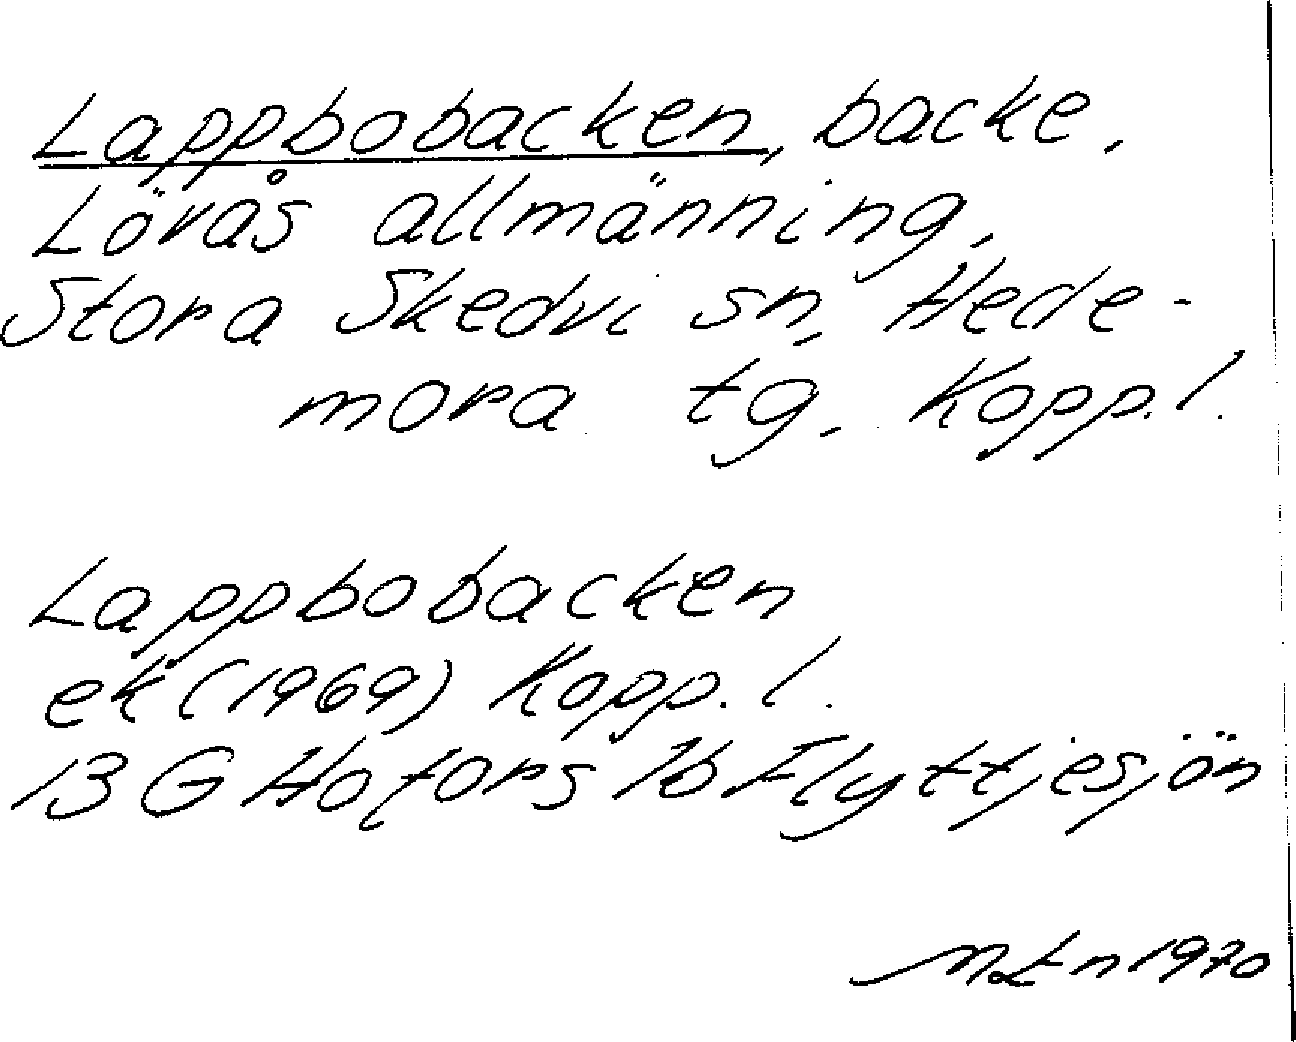 Lappbobacken, backe,
Lövås allmänning,
Stora Skedvi sn, Hede-
mora tg, Kopp.l.
Lappbobacken
ek (1969) Kopp.l.
13 G Hofors 1b Flyttjesjön
1970